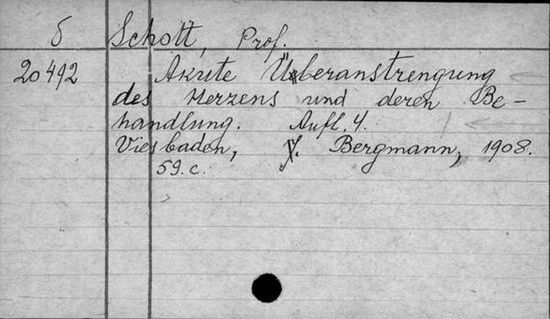 5 Schott, Prof.
20492 Akute Überanstrengung
des Herzens und deren Be-
handlung. Aufl. 4.
Viesbaden, J. Bergmann, 1908.
59. c.